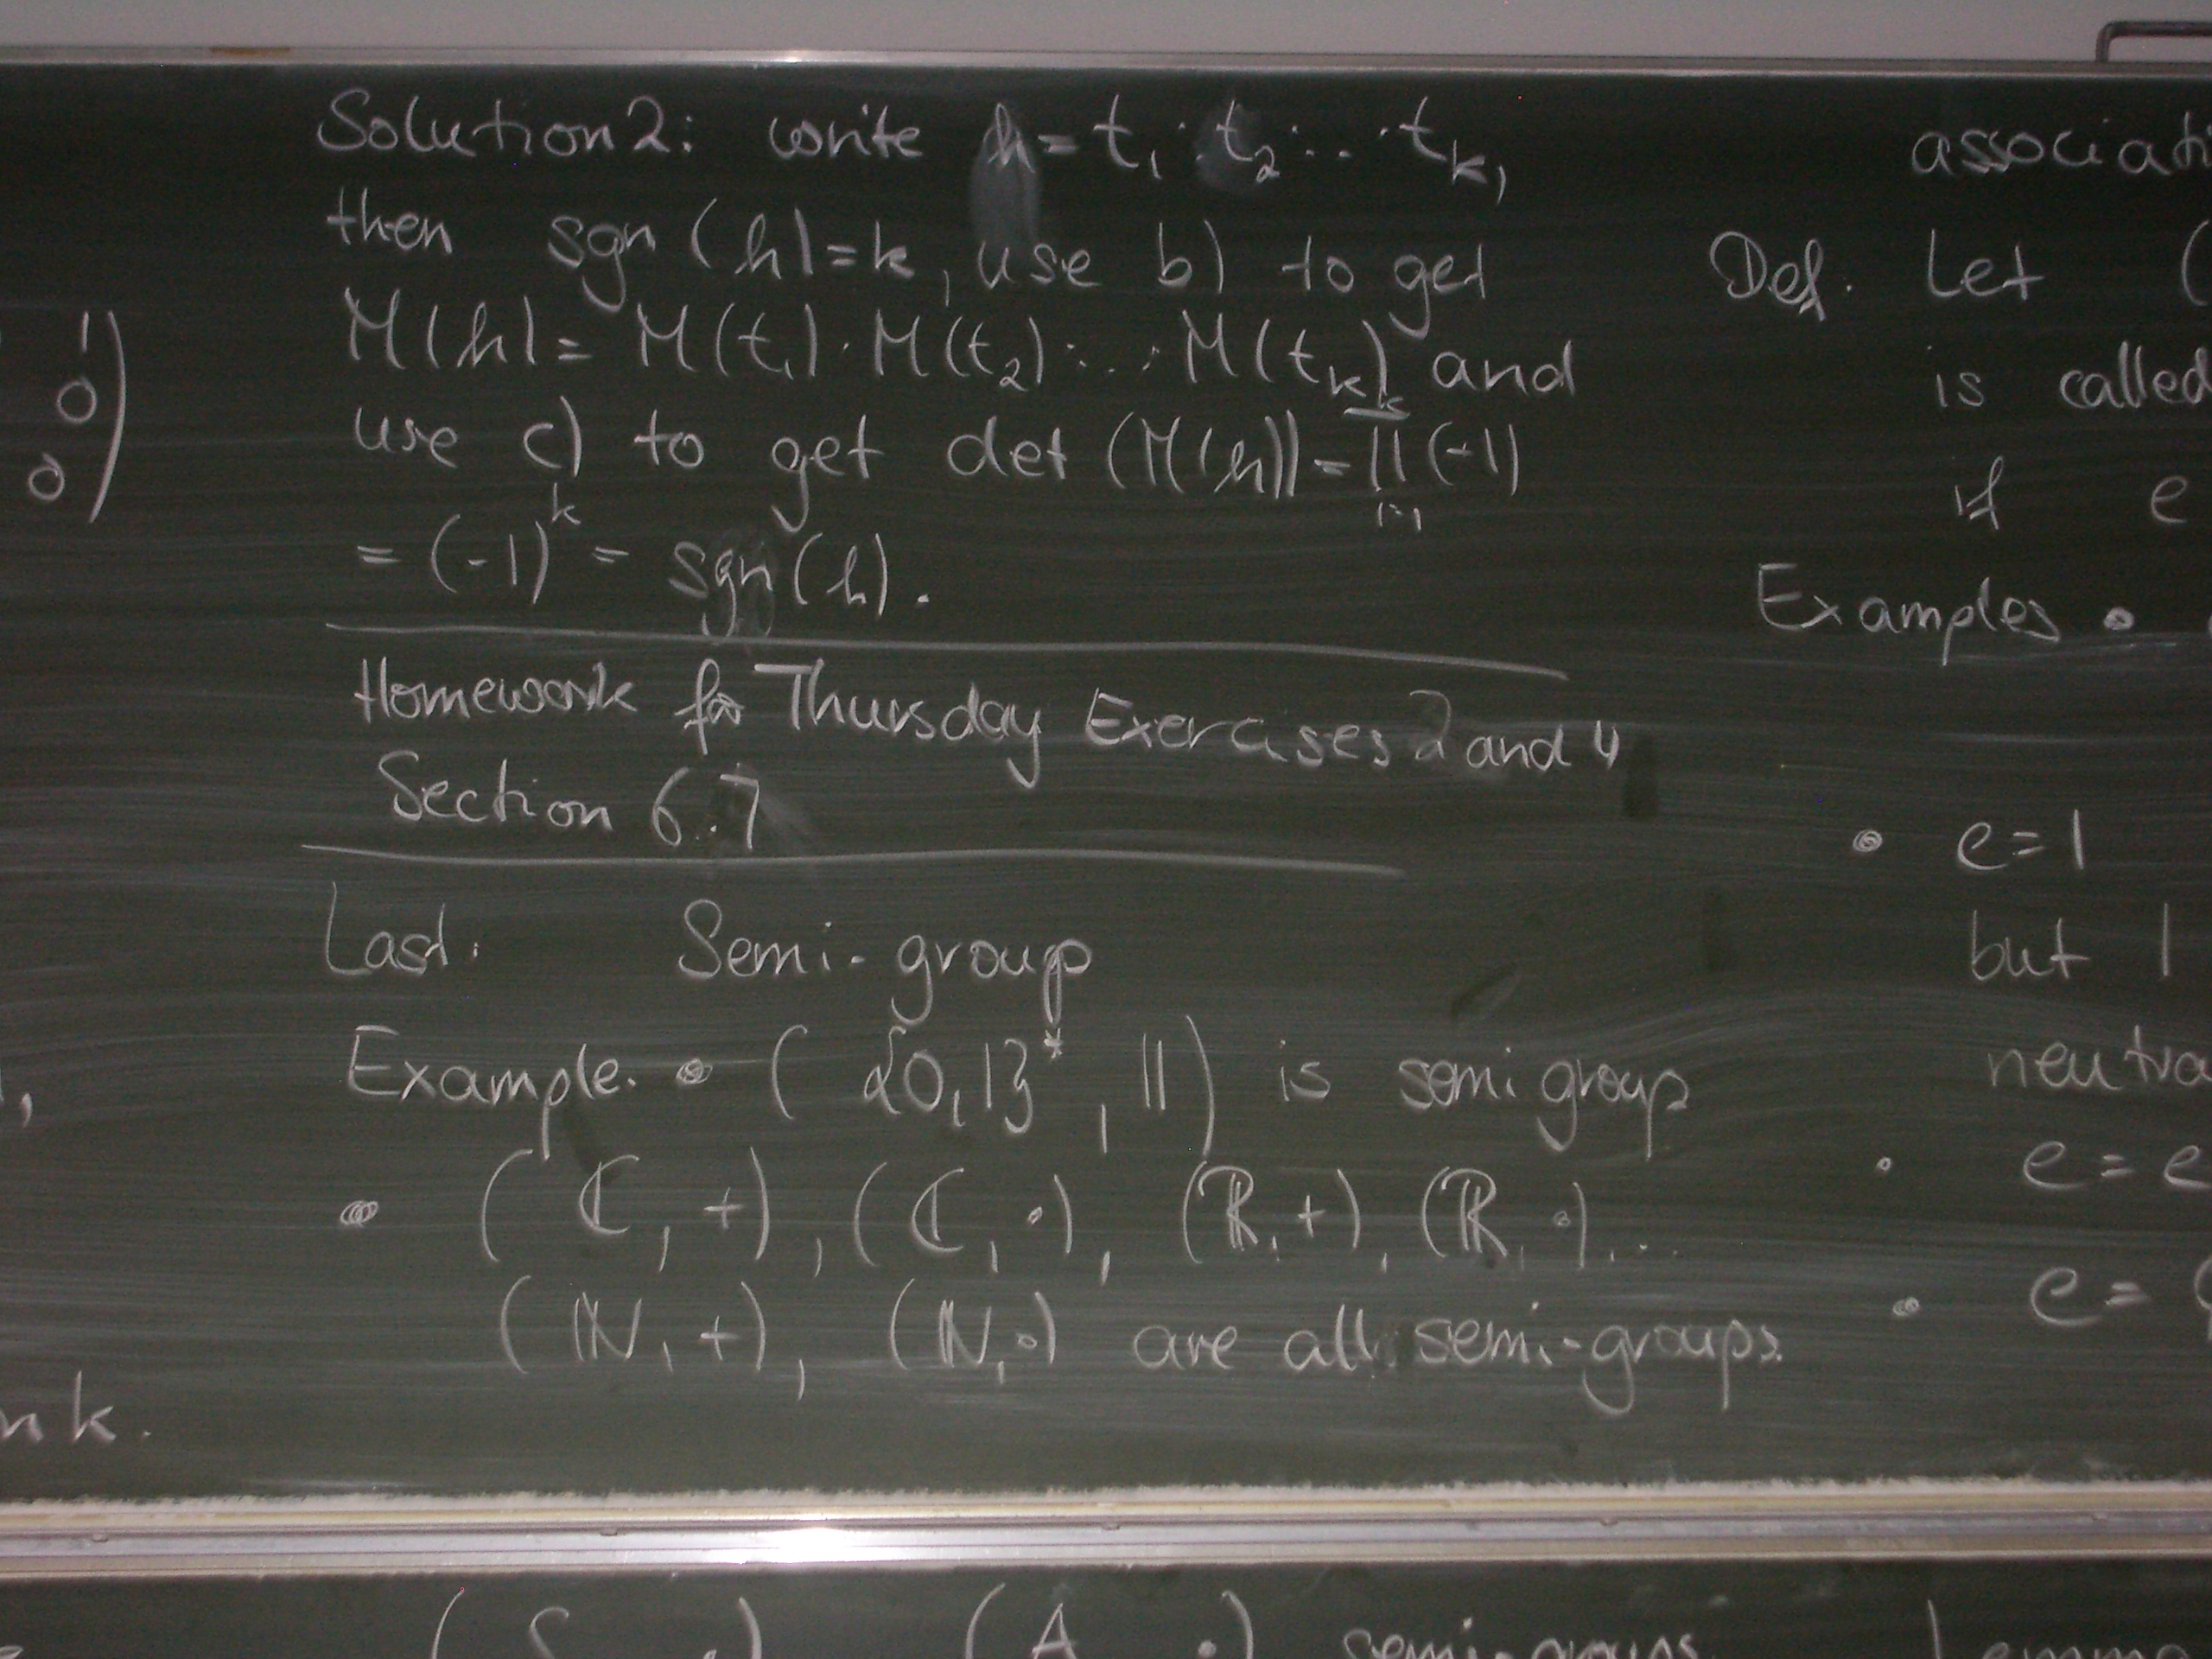 1
0
0
,
nk.
Solution 2: write h = t₁ · t₂ · ... · t_k,
then sgn(h) = k, use b) to get
M(h) = M(t₁) · M(t₂) · ... · M(t_k) and
use c) to get det (M(h)) = ∏_{i=1}^{k} (-1)
= (-1)^k = sgn(h).
Homework for Thursday Exercises 2 and 4
Section 6.7
Last: Semi-group
Example. • ( {0,1}* , || ) is semi group
• ( ℂ, +), (ℂ, •), (ℝ, +), (ℝ, •), ...
( ℕ, +), (ℕ, •) are all semi-groups.
( S •) ( A •) semi-groups
associati
Def. Let (
is called
if e
Examples •
• e=1
but 1
neutra
• e = e
• e =
Lemma